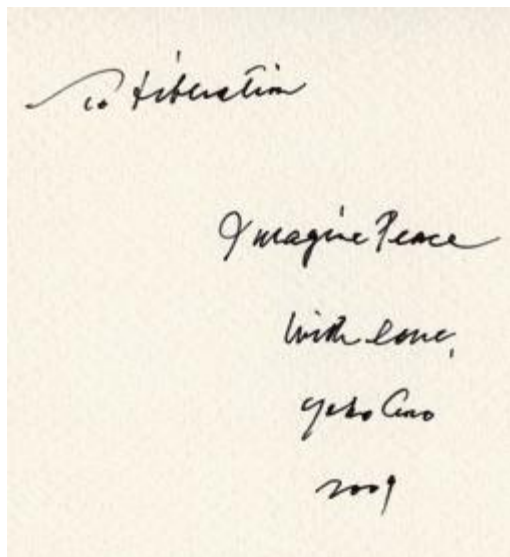 To Libération
Imagine Peace
With love,
yoko ono
2009